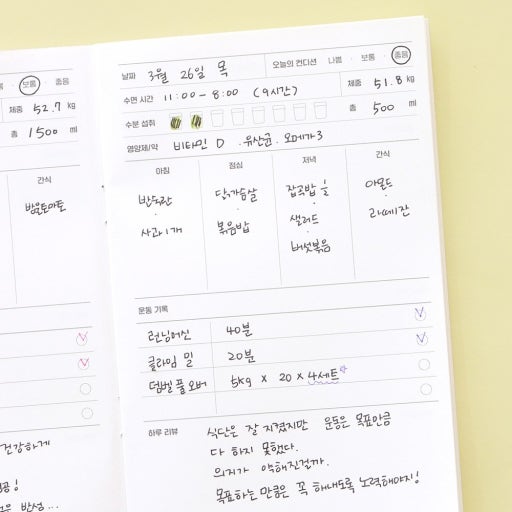 보통 · 좋음
체중 52.7 kg
총 1500 ml
간식
방울토마토
건강하게
날짜 3월 26일 목 오늘의 컨디션 나쁨 · 보통 · 좋음
수면 시간 11:00 - 8:00 (9시간) 체중 51.8 kg
수분 섭취 총 500 ml
영양제/약 비타민 D . 유산균 . 오메가3
아침 점심 저녁 간식
반숙란 닭가슴살 잡곡밥 ½ 아몬드
사과 1개 볶음밥 샐러드
버섯볶음
운동 기록
런닝머신 40분
클라임 밀 20분
덤벨 풀오버 5kg x 20 x 4세트
하루 리뷰 식단은 잘 지켰지만 운동은 목표만큼
다 하지 못했다.
의지가 약해진걸까.
목표하는 만큼은 꼭 해내도록 노력해야지!